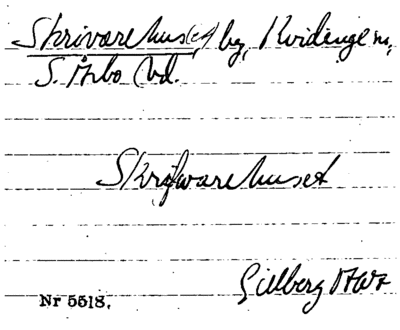 Skrivarehus(et), by, Kvidinge sn,
S. Åsbo hd.
Skrifwarehuset
Gillberg
Nr 5518.